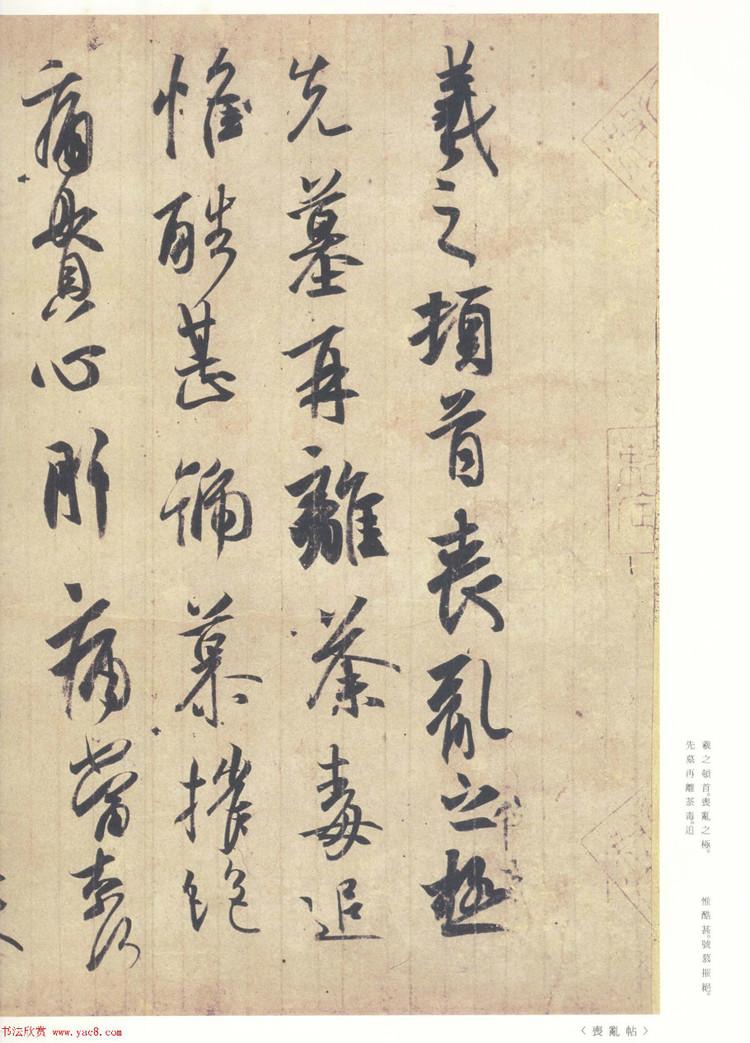 羲之頓首喪亂之極
先墓再離荼毒追
惟酷甚號慕摧絕
痛貫心肝痛當奈何
羲之頓首。喪亂之極。
先墓再離荼毒。追
惟酷甚。號慕摧絕。
〈喪亂帖〉
书法欣赏 www.yac8.com